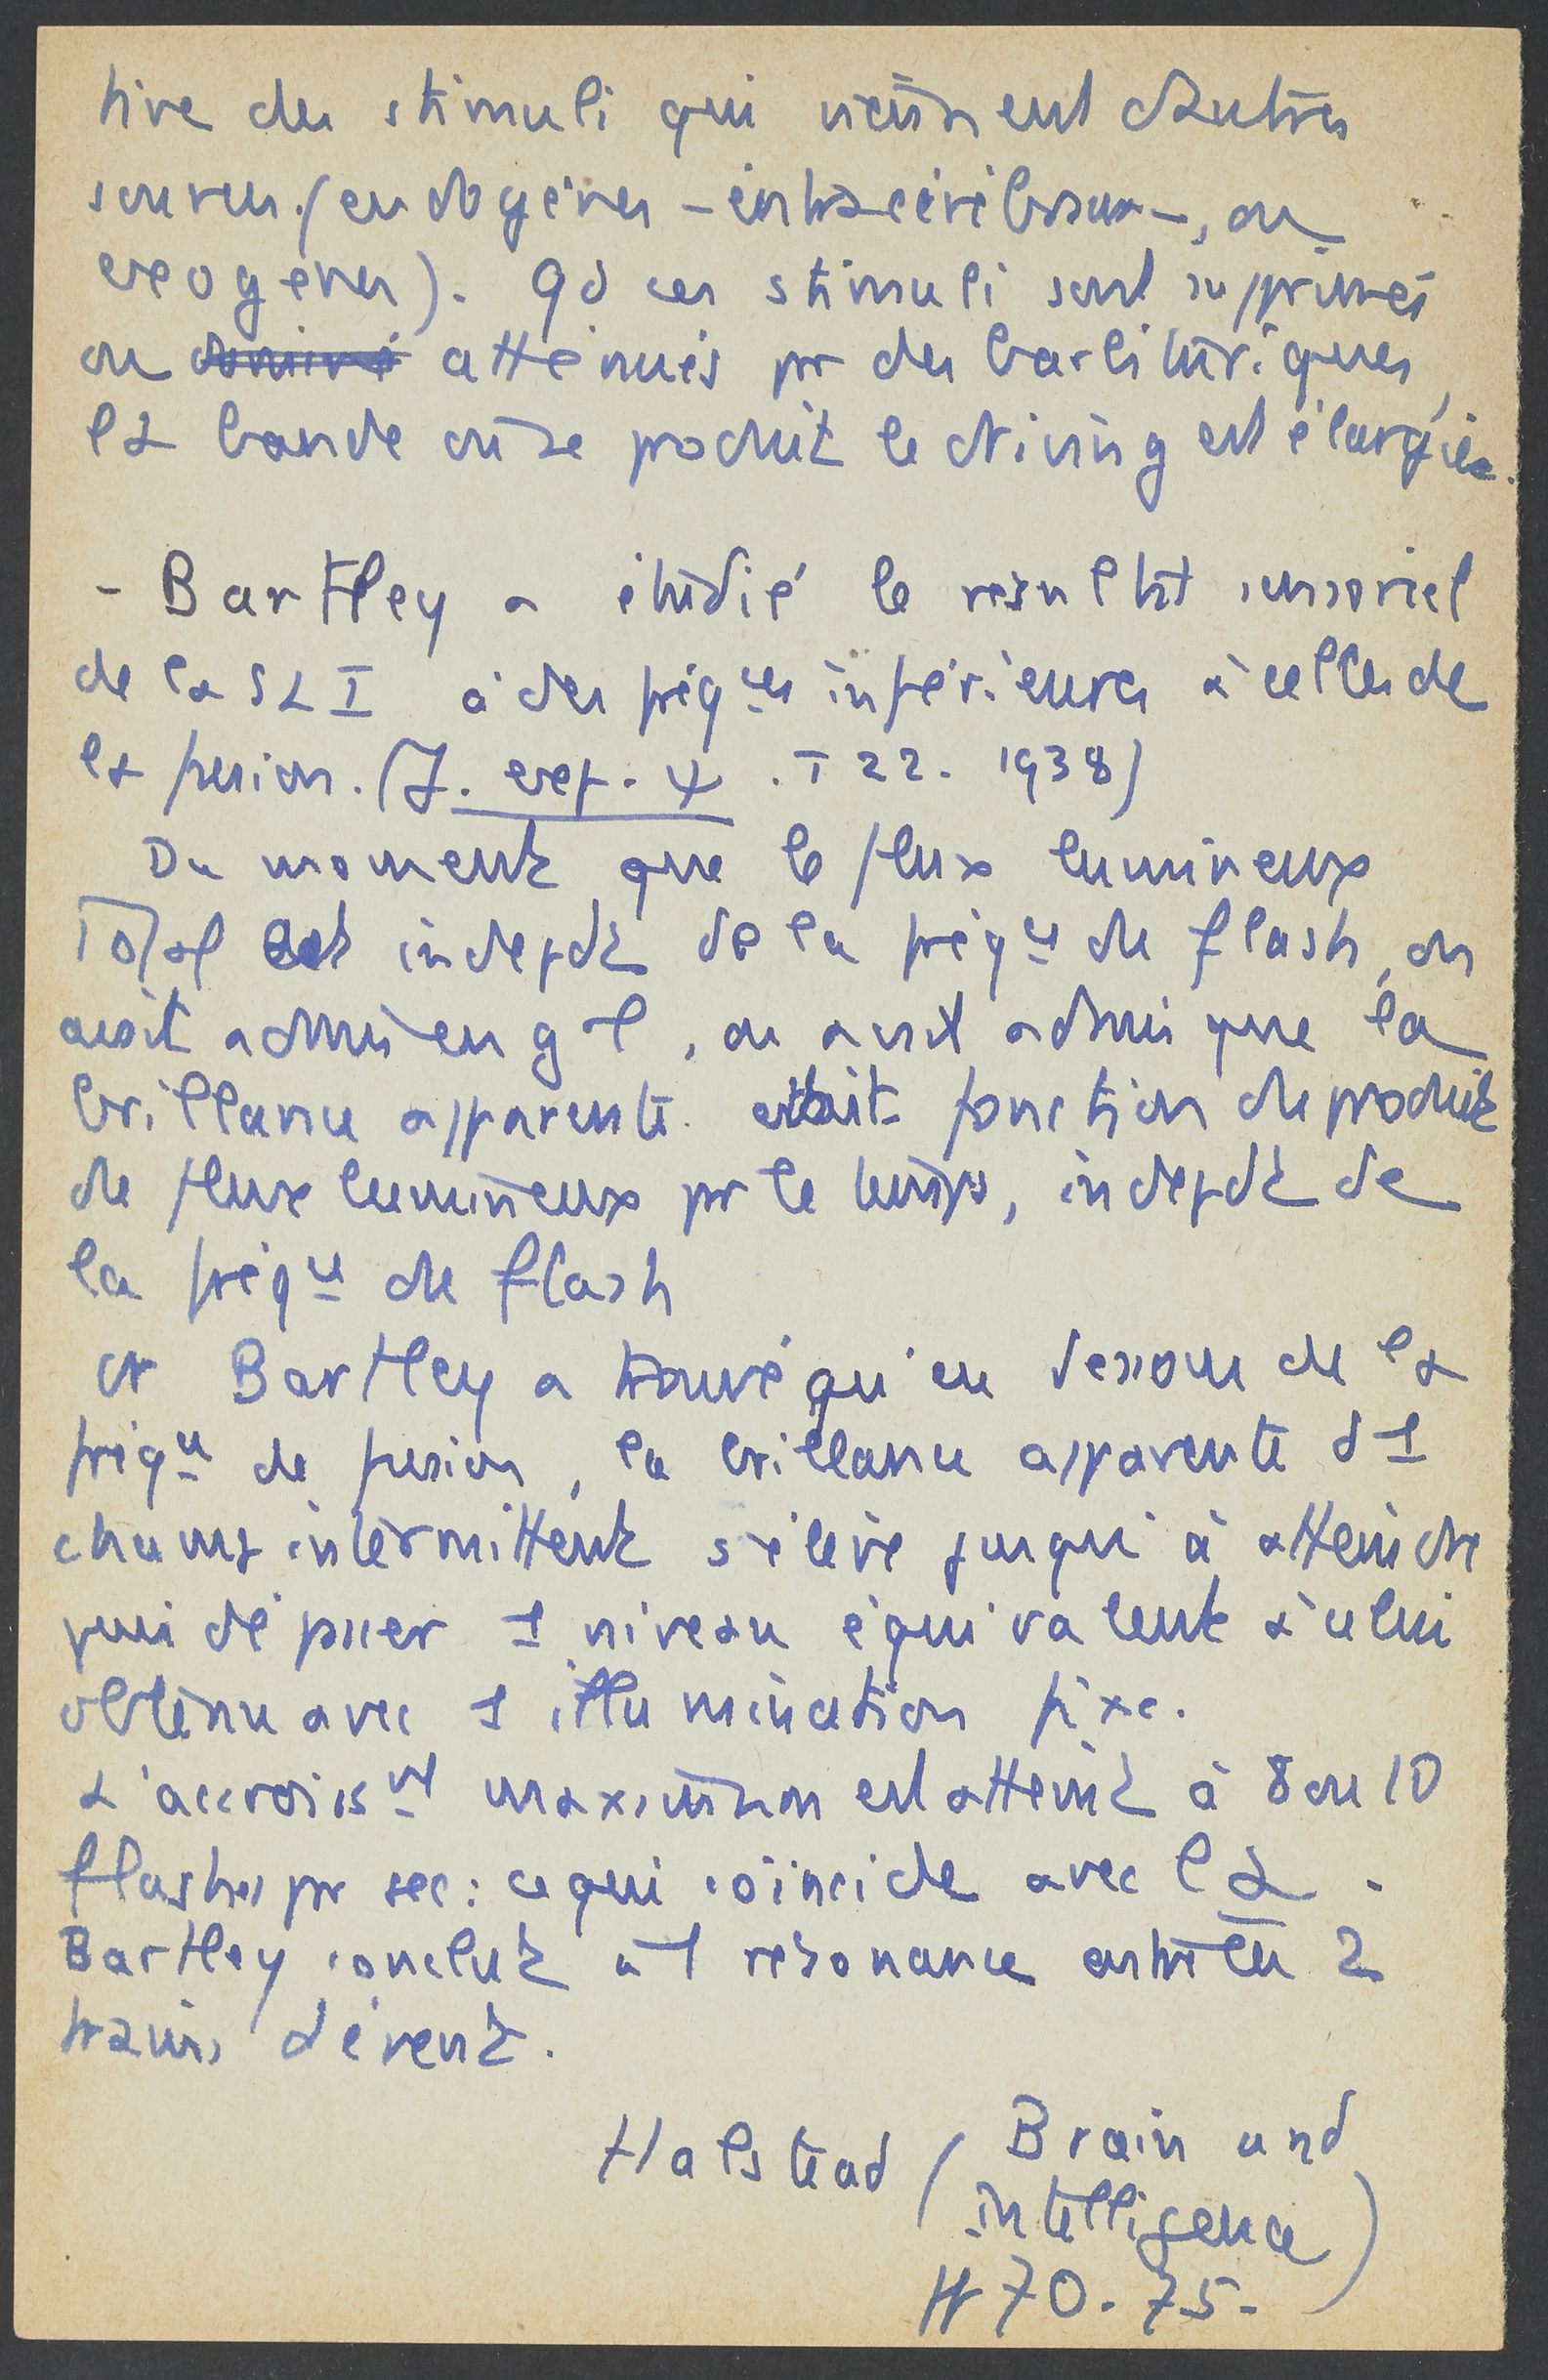 tive des stimuli qui viennent d'autres
sources (endogènes – intracérébraux –, ou
exogènes). Qd ces stimuli sont supprimés
ou atténués pr des barbituriques,
la bande où se produit le driving est élargie.
- Bartley a étudié le résultat sensoriel
de la SLI à des fréques inférieures à celles de
la fusion. (J. exp. ψ. T 22. 1938)
Du moment que le flux lumineux
Total est indepdt de la fréqu de flash, on
avait admis en gal, on avait admis que la
brillance apparente était fonction du produit
du flux lumineux pr le temps, indepdt de
la fréqu de flash
Or Bartley a trouvé qu'en dessous de la
fréqu de fusion, la brillance apparente d1
champ intermittent s'élève jusqu'à atteindre
puis dépasser 1 niveau équivalent à celui
obtenu avec 1 illumination fixe.
L'accroissnt maximum est atteint à 8 ou 10
flashes pr sec : ce qui coïncide avec l α.
Bartley conclut à 1 résonance entre les 2
trains d'évent.
Halstead (Brain and
intelligence)
70-75-